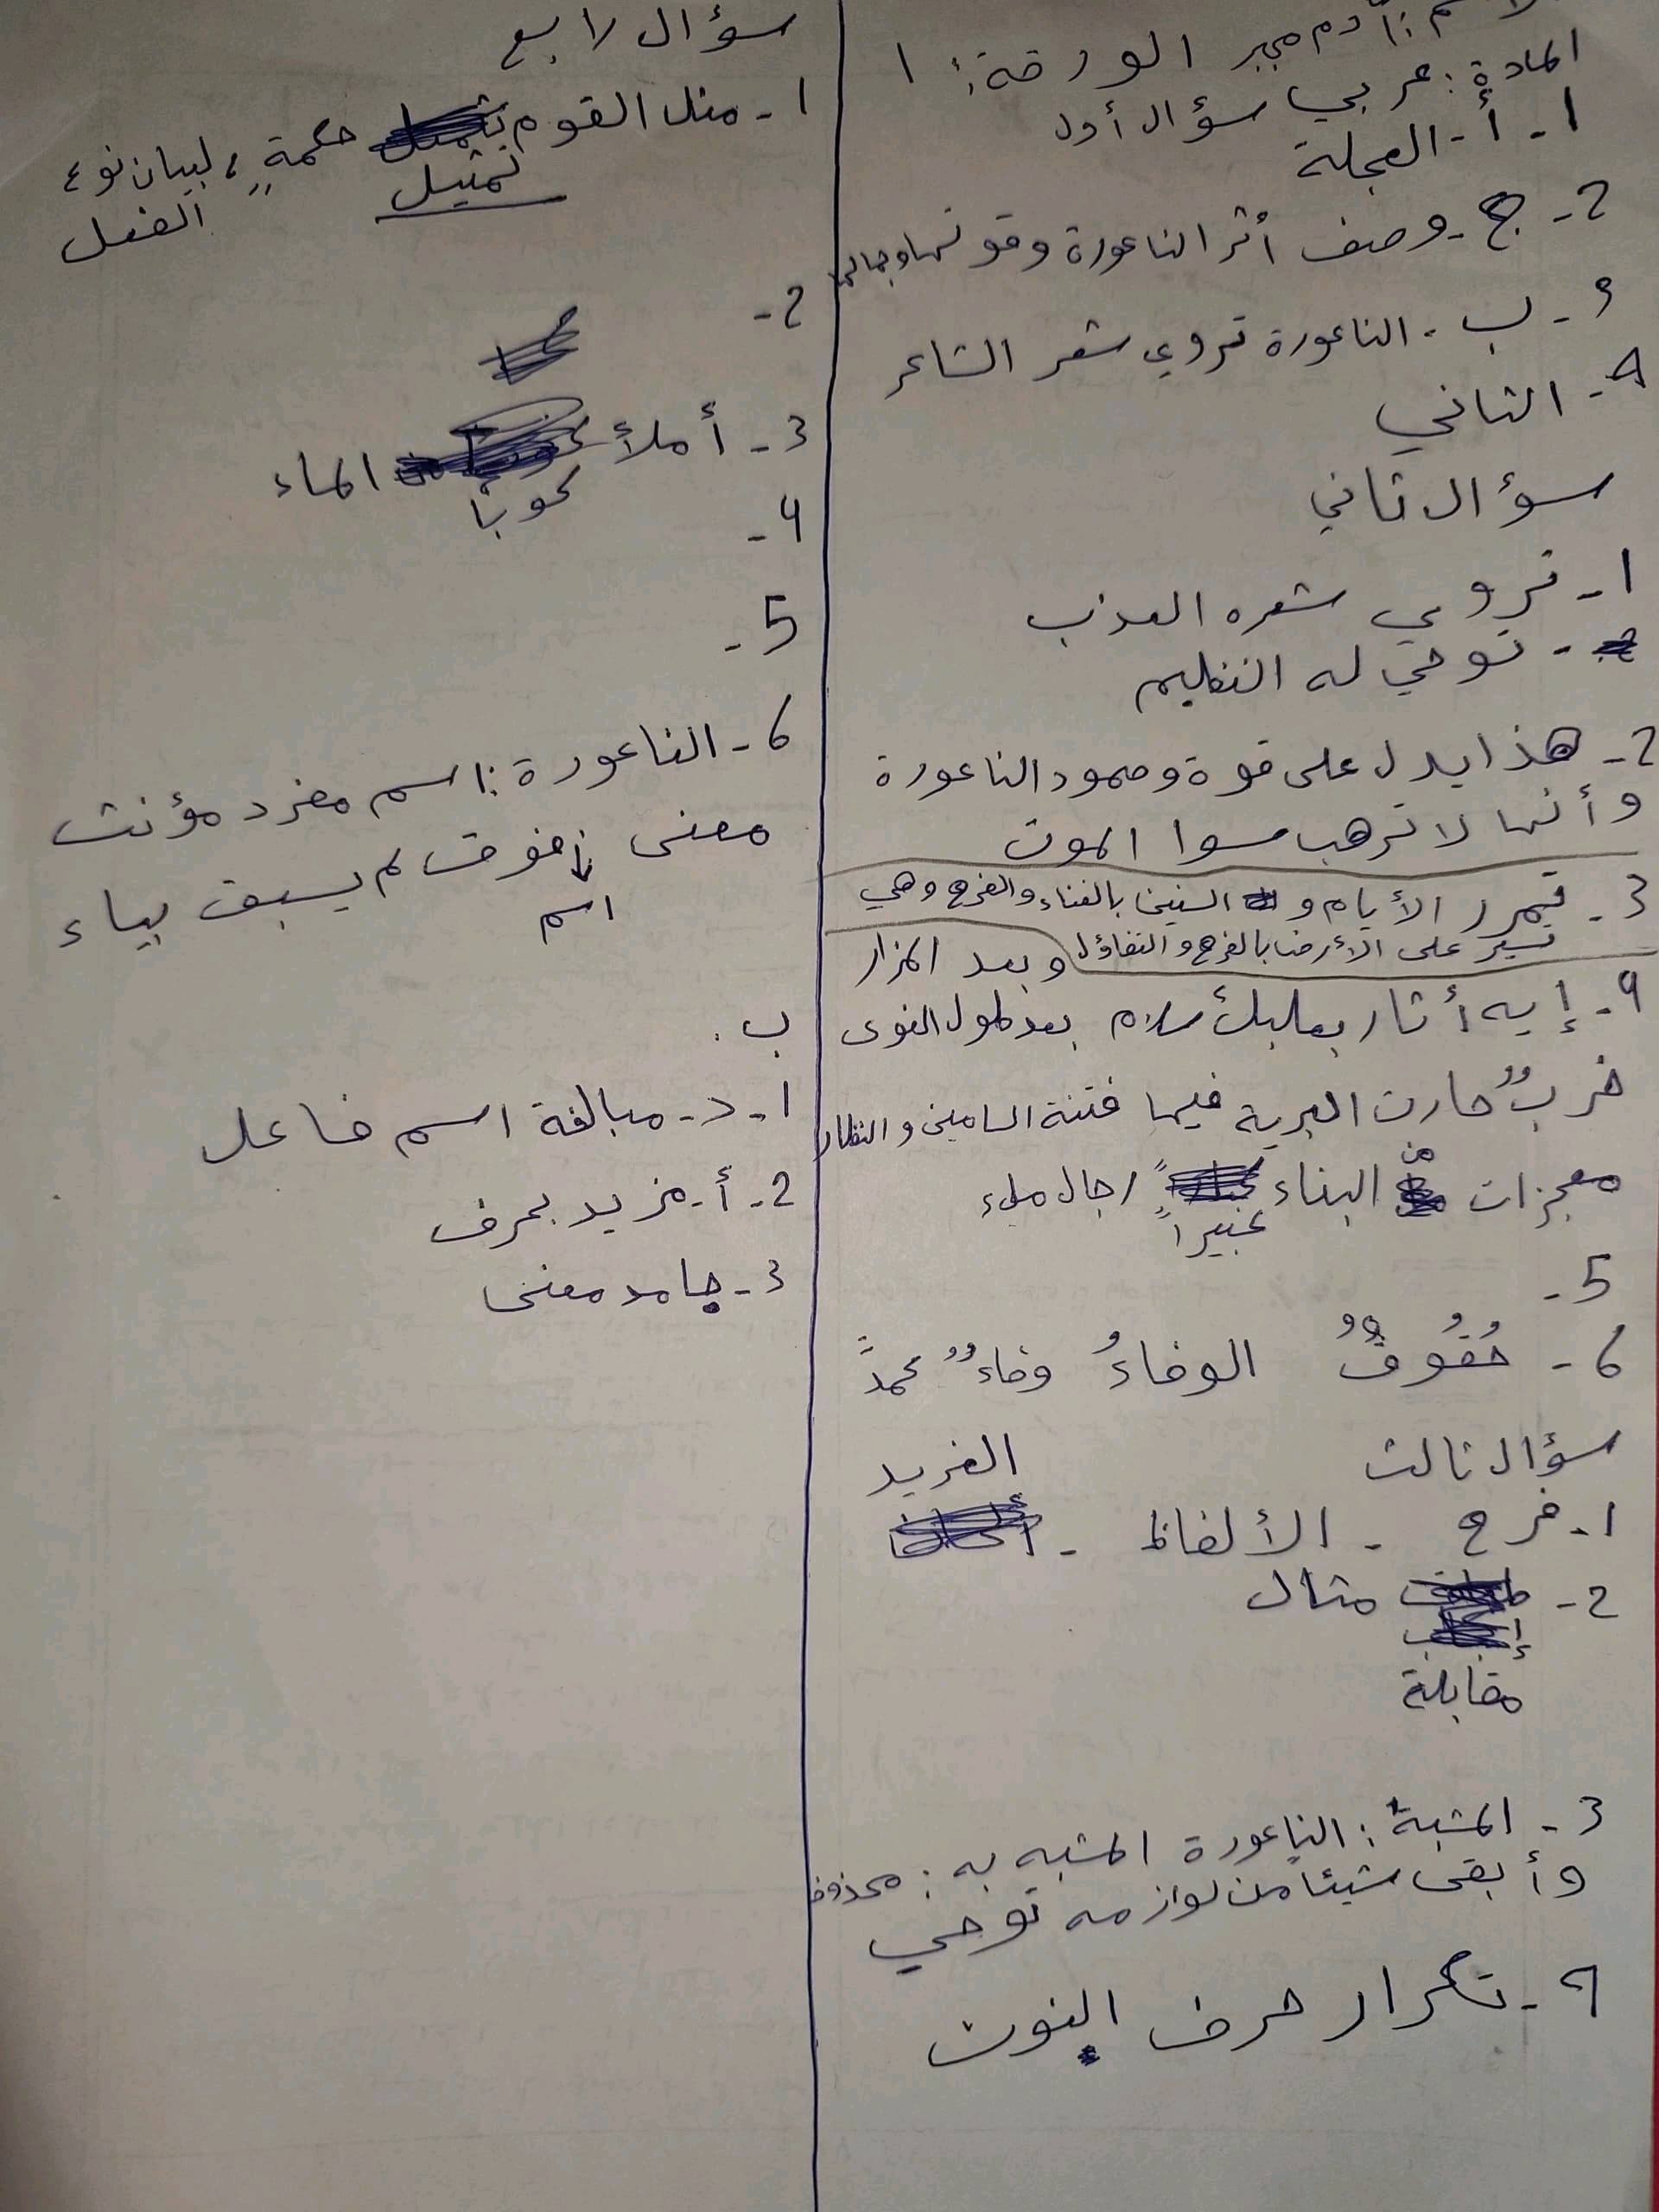 الاسم: آدم مجبر الورقة: 1
المادة: عربي سؤال أول
1- أ- العجلة
2- ج- وصف أثر الناعورة وقوتها وجمالها
3- ب- الناعورة تروي شعر الشاعر
4- الثاني
سؤال ثاني
1- تروي شعره العذب
- توحي له التنظيم
2- هذا يدل على قوة وصمود الناعورة
وأنها لا ترهب سوا الموت
3- تمرر الأيام و السنين بالغناء والفرح وهي
تسير على الأرض بالفرح والتفاؤل
4- إيه أثار بعلبك سلام بعد طول النوى وبعد المزار
خربٌ حارت البرية فيها فتنة السامعين و النظار
معجزات من البناء كبيراً رجال ملء
5-
6- حُقُوقٌ الوفاءُ وفاءٌ محمدً
سؤال ثالث
1- فرح - الألفاظ - الفريد
2- مثال
مقابلة
3- المشبه: الناعورة المشبه به: محذوف
وأبقى شيئا من لوازمه توحي
4- تكرار حرف النون
سؤال رابع
1- مثل القوم تمثيل حكمةٍ، لبيان نوع
الفعل
2-
3- أملأ كوبا الماء
4-
5-
6- الناعورة: اسم مفرد مؤنث
معنى فوق لم يسبق بياء
اسم
ب.
1- د- مبالغة اسم فاعل
2- أ- مزيد بحرف
3- جامد معنى